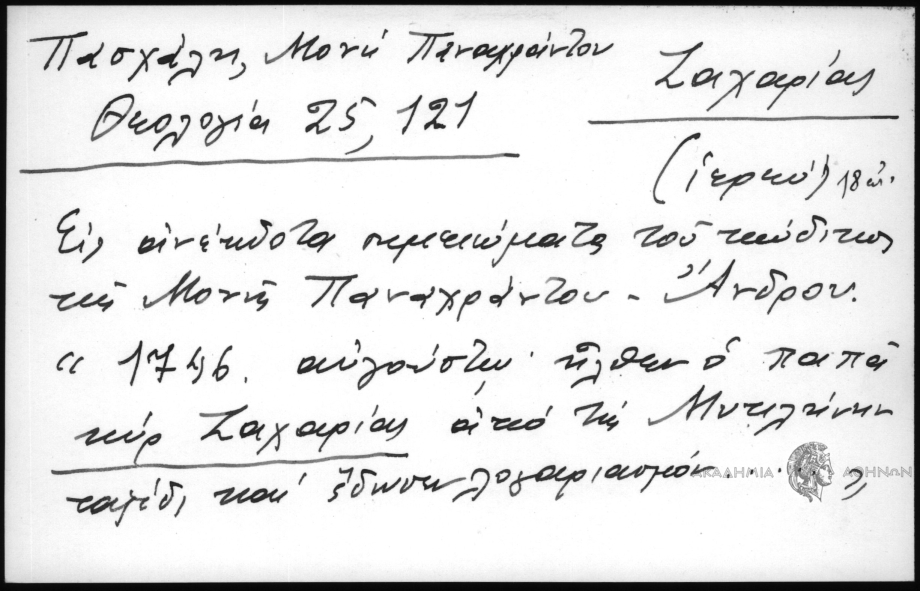 Πασχάλης, Μονή Παναχράντου
Θεολογία 25, 121
Ζαχαρίας
(ἱερεύς) 18 αἰ.
Εἰς ἀνέκδοτα σημειώματα τοῦ κώδικος
τῆς Μονῆς Παναχράντου - Ἄνδρου.
« 1746. αὐγούστου ἦλθεν ὁ παπᾶ
κύρ Ζαχαρίας ἀπό τῆς Μυτιλήνην
ταξίδι καί ἔδωσεν λογαριασμόν . . . . . »
ΑΚΑΔΗΜΙΑ ΑΘΗΝΩΝ